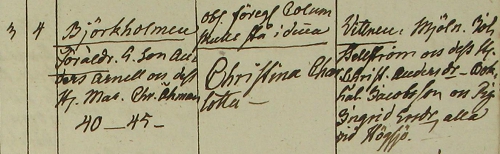 3 4 Björkholmen
Föräldr. C. Son An
ders Arnell och dess
H. Mar. Chr. Öhman
40 — 45 —
Obs. föregl. Colum
skulle stå i dena
Christina Char
lotta —
Vittnen: Mjöln. Joh
Hellström och dess H.
Christ. Andersdr
Jacobsson och Pig
Ingrid Ersdr, alla
vid Högsjö.